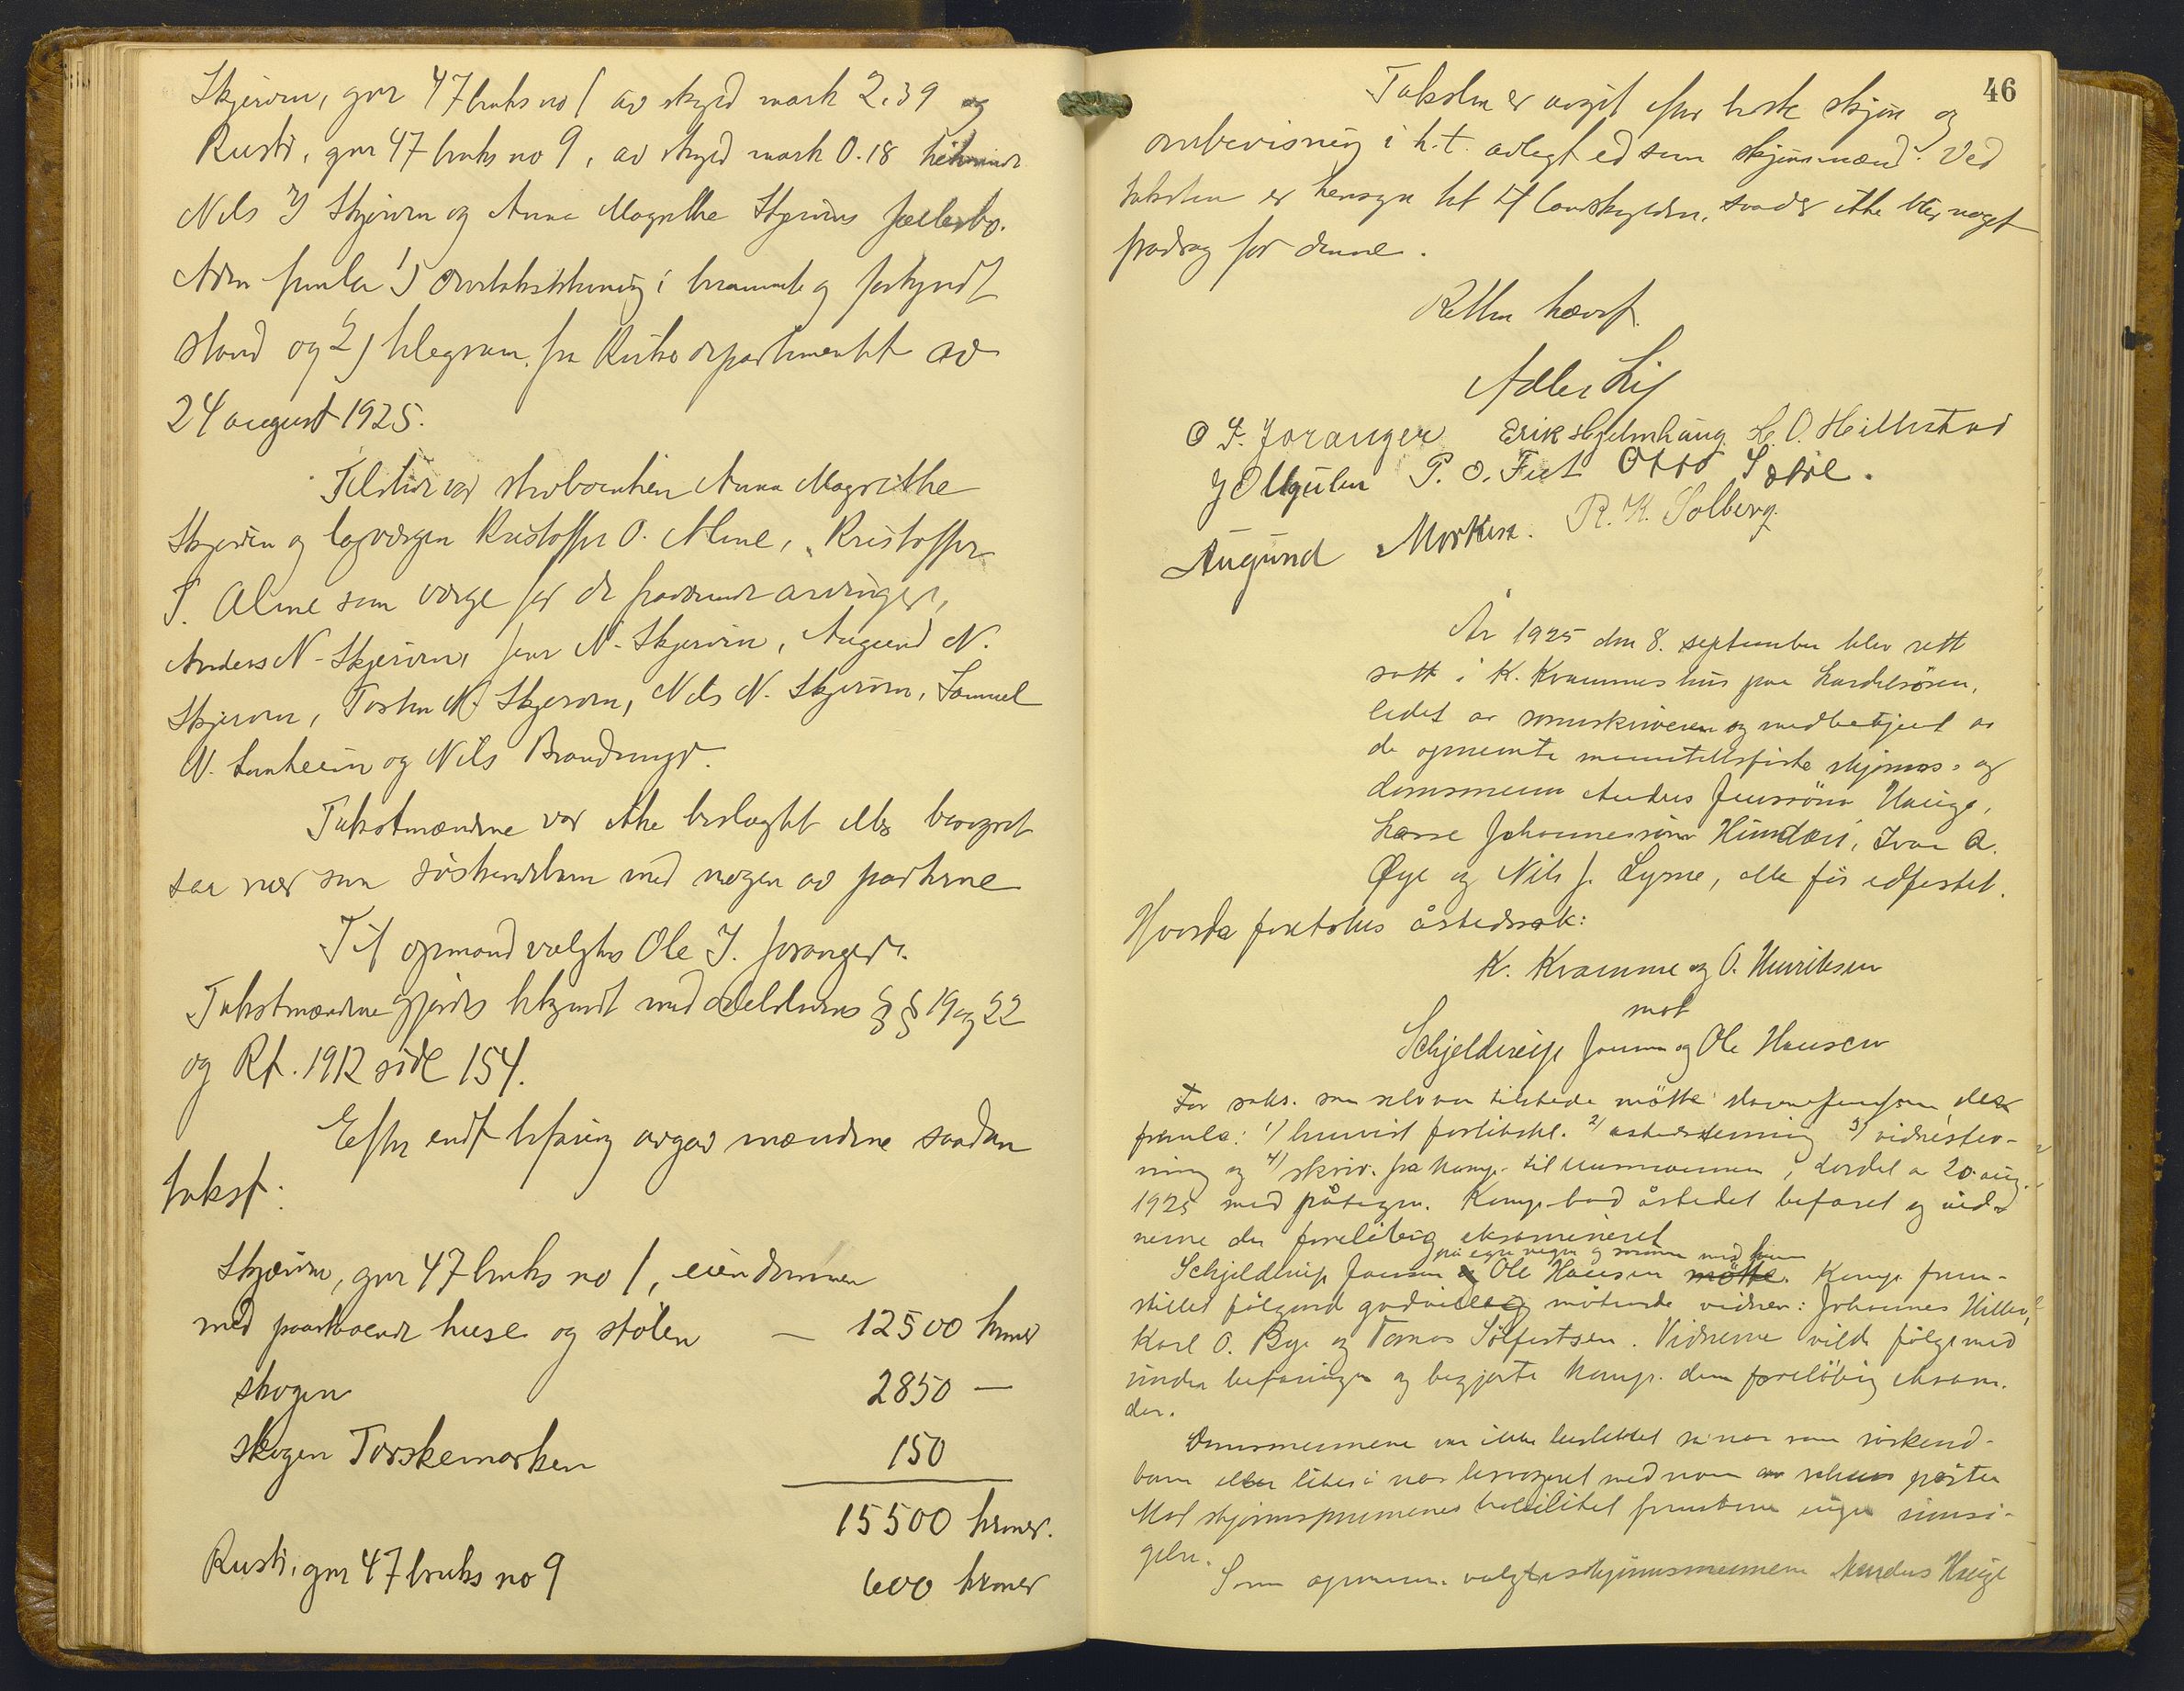 Skjerven, gnr 47 bruks no 1 av skyld mark 2.39 og
Rusti, gnr 47 bruks no 9, av skyld mark 0.18 tilhørende
Nils I Skjerven og Anna Magrethe Skjervens fællesbo.
Adm fremla 1) overtakstutmeding i berammet og forkyndt
stand og 2) telegram fra Justisdepartementet av
24 august 1925.
Tilstede var stervboenken Anna Magrethe
Skjerven og lagvergen Kristoffer O. Alme, Kristoffer
S. Alme som verge for de fraværende arvinger,
Anders N. Skjerven, Jens N. Skjerven, Augund N.
Skjerven, Tosten N. Skjerven, Nils N. Skjerven, Samuel
N. Lunheim og Nils
Takstmændene var ikke beslægtet eller besvogret
saa nær som søskendebarn med nogen av parterne
Til opmand valgtes Ole I. Joranger.
Takstmændene gjordes bekjendt med odelslovens §§ 19 og 22
og Rt. 1912 side 154.
Efter endt befaring avgav mændene saadan
takst:
Skjerven, gnr 47 bruks no 1, eiendommen
med paastaaende huse og stølen — 12500 kroner
skogen 2850 —
skogen Torskemarken 150
15500 kroner.
Rusti, gnr 47 bruks no 9 600 kroner
46
Taksten er avgit efter beste skjøn og
overbevisning i h.t. avlagt ed som skjønsmænd. Ved
taksten er hensyn tat til landskylden, saa der ikke blir noget
fradrag for denne.
Retten hævet.
Adler Lij
O I. Joranger Erik Hjelmhaug H. O. Hillestad
J O Mgulen P. O. Fuet Otto Sætre.
Augund Morken. R. K. Solberg.
År 1925 den 8. september blev rett
satt i K. Kvammes hus paa Lærdalsøren,
ledet av sorenskriveren og medbetjent av
de opnevnte skjønns- og
domsmenn Andres Jenssønn Hauge,
Lasse Johannessønn Hunderi, Ivar A.
Øye og Nils J. Lysne, alle før edfestet.
Hvorda foretokes åstedssak:
K. Kvamme og O. Henriksen
mot
Schjelderup Jansen og Ole Hansen
For saks. som selv var tilstede møtte der
fremla: 1) forlikskl. 2) astedsstevning 3) vidnestev-
ning og 4) skriv. fra komp. til , Lærdal av 20. aug.
1925 med påtegn. Komp. bad åstedet befaret og vid-
nerne der foreløbig eksamineret
på egne vegne og sammen med ham
Schjelderup Jansen og Ole Hansen møtte. Komp. frem-
stillet følgende godvillig møtende vidner: Johannes Hiller,
Karl O. Bye og Tomas Sølfestsen. Vidnerne vilde følge med
under befaringen og begjærte komp. dem foreløbig eksam.
der.
Domsmennene var ikke beslektet så nær som søskend-
barn eller like så nær besvogret med noen av sakens parter
Mot skjønnsmennenes habilitet fremkom ingen innsi-
gelse.
Som opmann valgtes skjønnsmennene Andres Hauge